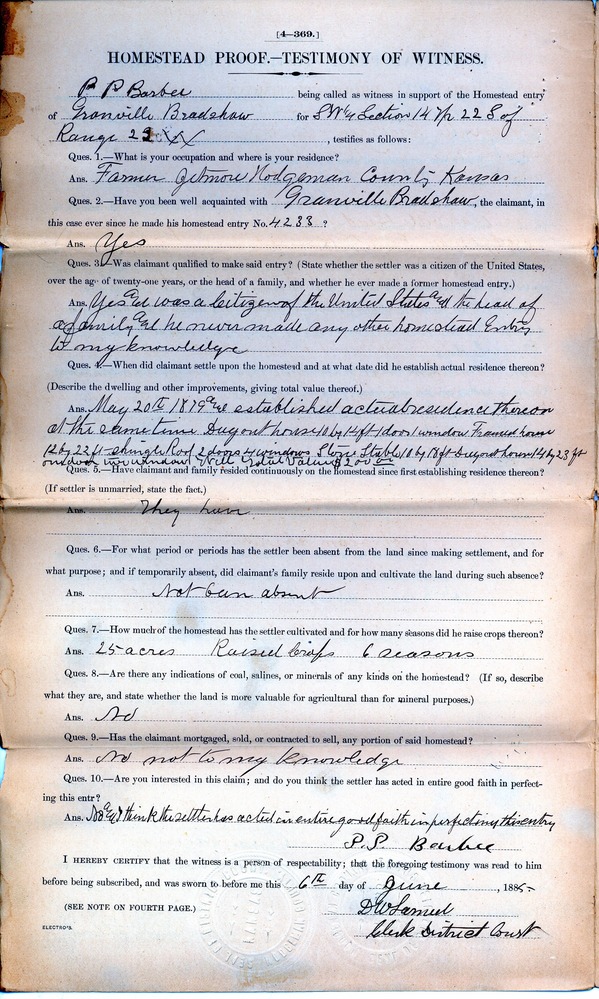 [4—369.]
HOMESTEAD PROOF.—TESTIMONY OF WITNESS.
P P Barbee being called as witness in support of the Homestead entry
of Granville Bradshaw for S.W¼ Section 14 Tp 22 S of
Range 23 , testifies as follows:
Ques. 1.—What is your occupation and where is your residence?
Ans. Farmer Jetmore Hodgeman County Kansas
Ques. 2.—Have you been well acquainted with Granville Bradshaw, the claimant, in
this case ever since he made his homestead entry No. 4233 ?
Ans. Yes
Ques. 3.—Was claimant qualified to make said entry? (State whether the settler was a citizen of the United States,
over the age of twenty-one years, or the head of a family, and whether he ever made a former homestead entry.)
Ans. Yes and was a Citizen of the United States and the head of
a family and he never made any other homestead Entry
to my knowledge
Ques. 4.—When did claimant settle upon the homestead and at what date did he establish actual residence thereon?
(Describe the dwelling and other improvements, giving total value thereof.)
Ans. May 20th 1879 and established actual residence thereon
at the same time Dugout house 10 by 14 ft 1 door 1 window Framed house
12 by 22 ft shingle Roof 2 doors 4 windows Stone Stable 16 by 18 ft Dugout house 14 by 23 ft
one door window Well total Value $200.00
Ques. 5.—Have claimant and family resided continuously on the homestead since first establishing residence thereon?
(If settler is unmarried, state the fact.)
Ans. They have
Ques. 6.—For what period or periods has the settler been absent from the land since making settlement, and for
what purpose; and if temporarily absent, did claimant's family reside upon and cultivate the land during such absence?
Ans. Not been absent
Ques. 7.—How much of the homestead has the settler cultivated and for how many seasons did he raise crops thereon?
Ans. 25 acres Raised Crops 6 seasons
Ques. 8.—Are there any indications of coal, salines, or minerals of any kinds on the homestead? (If so, describe
what they are, and state whether the land is more valuable for agricultural than for mineral purposes.)
Ans. No
Ques. 9.—Has the claimant mortgaged, sold, or contracted to sell, any portion of said homestead?
Ans. No not to my knowledge
Ques. 10.—Are you interested in this claim; and do you think the settler has acted in entire good faith in perfect-
ing this entr?
Ans. No and I think the settler has acted in entire good faith in perfecting this entry
P. P. Barbee
I HEREBY CERTIFY that the witness is a person of respectability; that the foregoing testimony was read to him
before being subscribed, and was sworn to before me this 6th day of June , 1885.
(SEE NOTE ON FOURTH PAGE.) D W Lamuel
Clerk District Court
ELECTRO'S.